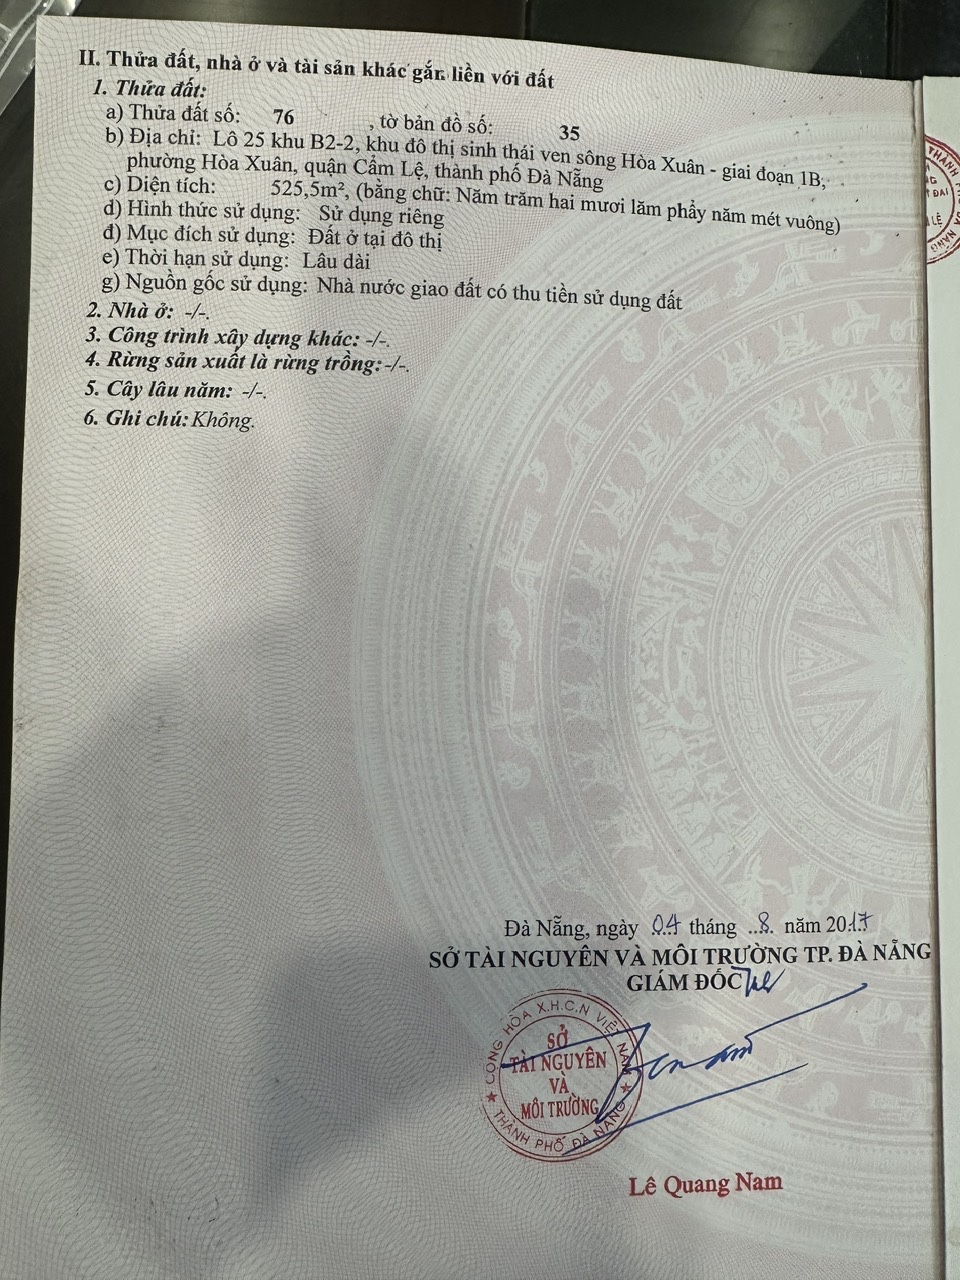 II. Thửa đất, nhà ở và tài sản khác gắn liền với đất
1. Thửa đất:
a) Thửa đất số: 76 , tờ bản đồ số: 35
b) Địa chỉ: Lô 25 khu B2-2, khu đô thị sinh thái ven sông Hòa Xuân - giai đoạn 1B,
phường Hòa Xuân, quận Cẩm Lệ, thành phố Đà Nẵng
c) Diện tích: 525,5m², (bằng chữ: Năm trăm hai mươi lăm phẩy năm mét vuông)
d) Hình thức sử dụng: Sử dụng riêng
đ) Mục đích sử dụng: Đất ở tại đô thị
e) Thời hạn sử dụng: Lâu dài
g) Nguồn gốc sử dụng: Nhà nước giao đất có thu tiền sử dụng đất
2. Nhà ở: -/-.
3. Công trình xây dựng khác: -/-.
4. Rừng sản xuất là rừng trồng: -/-.
5. Cây lâu năm: -/-.
6. Ghi chú: Không.
Đà Nẵng, ngày 04 tháng 8 năm 2017
SỞ TÀI NGUYÊN VÀ MÔI TRƯỜNG TP. ĐÀ NẴNG
GIÁM ĐỐC
CỘNG HÒA X.H.C.N VIỆT NAM
SỞ
TÀI NGUYÊN
VÀ
MÔI TRƯỜNG
THÀNH PHỐ ĐÀ NẴNG
Lê Quang Nam